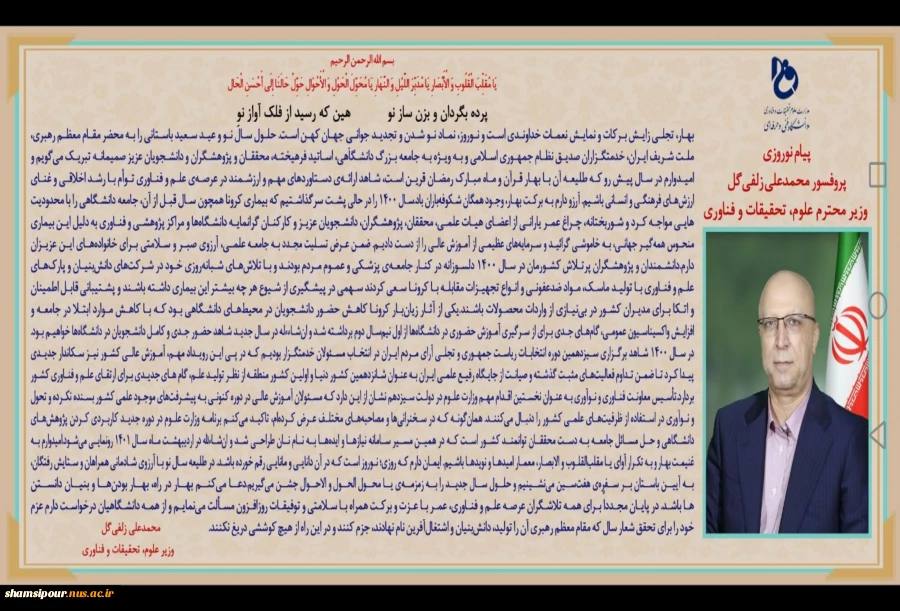 بسم الله الرحمن الرحیم
یَا مُقَلِّبَ الْقُلُوبِ وَ الْأَبْصَارِ یَا مُدَبِّرَ اللَّیْلِ وَ النَّهَارِ یَا مُحَوِّلَ الْحَوْلِ وَ الْأَحْوَالِ حَوِّلْ حَالَنَا إِلَی أَحْسَنِ الْحَالِ
پرده بگردان و بزن ساز نو هین که رسید از فلک آواز نو
وزارت علوم، تحقیقات و فناوری
دانشگاه فنی و حرفه‌ای
پیام نوروزی
پروفسور محمدعلی زلفی گل
وزیر محترم علوم، تحقیقات و فناوری
بهار، تجلی زایش برکات و نمایش نعمات خداوندی است و نوروز، نماد نو شدن و تجدید جوانی جهان کهن است. حلول سال نو و عید سعید باستانی را به محضر مقام معظم رهبری،
ملت شریف ایران، خدمتگزاران صدیق نظام جمهوری اسلامی و به ویژه به جامعه بزرگ دانشگاهی، اساتید فرهیخته، محققان و پژوهشگران و دانشجویان عزیز صمیمانه تبریک می‌گویم و
امیدوارم در سال پیش رو که طلیعه آن با بهار قرآن و ماه مبارک رمضان قرین است، شاهد ارائه‌ی دستاوردهای مهم و ارزشمند در عرصه‌ی علم و فناوری توأم با رشد اخلاقی و غنای
ارزش‌های فرهنگی و انسانی باشیم. آرزو دارم به برکت بهار، وجود همگان شکوفه‌باران باد.سال ۱۴۰۰ را در حالی پشت سر گذاشتیم که بیماری کرونا همچون سال قبل از آن، جامعه دانشگاهی را با محدودیت
هایی مواجه کرد و شوربختانه، چراغ عمر یارانی از اعضای هیات علمی، محققان، پژوهشگران، دانشجویان عزیز و کارکنان گرانمایه دانشگاه‌ها و مراکز پژوهشی و فناوری به دلیل این بیماری
منحوس همه‌گیر جهانی، به خاموشی گرائید و سرمایه‌های عظیمی از آموزش عالی را از دست دادیم. ضمن عرض تسلیت مجدد به جامعه علمی، آرزوی صبر و سلامتی برای خانواده‌های این عزیزان
دارم.دانشمندان و پژوهشگران پرتلاش کشورمان در سال ۱۴۰۰ دلسوزانه در کنار جامعه‌ی پزشکی و عموم مردم بودند و با تلاش‌های شبانه‌روزی خود در شرکت‌های دانش‌بنیان و پارک‌های
علم و فناوری با تولید ماسک، مواد ضدعفونی و انواع تجهیزات مقابله با کرونا سعی کردند سهمی در پیشگیری از شیوع هر چه بیشتر این بیماری داشته باشند و پشتیبانی قابل اطمینان
و اتکا برای مدیران کشور در بی‌نیازی از واردات محصولات باشند.یکی از آثار زیان‌بار کرونا کاهش حضور دانشجویان در محیط‌های دانشگاهی بود که با کاهش موارد ابتلا در جامعه و
افزایش واکسیناسیون عمومی، گام‌های جدی برای از سرگیری آموزش حضوری در دانشگاه‌ها از اول نیمسال دوم برداشته شد و ان‌شاءلله در سال جدید شاهد حضور جدی و کامل دانشجویان در دانشگاه‌ها خواهیم بود.
در سال ۱۴۰۰ شاهد برگزاری سیزدهمین دوره انتخابات ریاست جمهوری و تجلی آرای مردم ایران در انتخاب مسئولان خدمتگزار بودیم که در پی این رویداد مهم، آموزش عالی کشور نیز سکاندار جدیدی
پیدا کرد تا ضمن تداوم فعالیت‌های مثبت گذشته و صیانت از جایگاه رفیع علمی ایران به عنوان شانزدهمین کشور دنیا و اولین کشور منطقه از نظر تولید علم، گام های جدیدی برای ارتقای علم و فناوری کشور
بردارد.تأسیس معاونت فناوری و نوآوری به عنوان نخستین اقدام مهم وزارت علوم در دولت سیزدهم نشان از این دارد که مسئولان آموزش عالی در دوره کنونی به پیشرفت‌های موجود علمی کشور بسنده نکرده و تحول
و نوآوری در استفاده از ظرفیت‌های علمی کشور را دنبال می‌کنند. همان‌گونه که در سخنرانی‌ها و مصاحبه‌های مختلف عرض کرده‌ام، تاکید می‌کنم برنامه وزارت علوم در دوره جدید کاربردی کردن پژوهش‌های
دانشگاهی و حل مسائل جامعه به دست محققان توانمند کشور است که در همین مسیر سامانه نیازها و ایده‌ها به نام نان طراحی شد و ان‌شاالله در اردیبهشت ماه سال ۱۴۰۱ رونمایی می‌شود.امیدوارم به
غنیمت بهار و به تکرار آوای یا مقلب‌القلوب و الابصار، معمار امیدها و نویدها باشیم. ایمان دارم که روزی؛ نوروز است که در آن دانایی و مانایی رقم خورده باشد. در طلیعه سال نو با آرزوی شادمانی همراهان و ستایش رفتگان،
به آیین باستان بر سفره‌ی هفت‌سین می‌نشینیم و حلول سال جدید را به زمزمه‌ی یا محول الحول و الاحوال جشن می‌گیریم.دعا می‌کنم بهار در راه، بهار بودن‌ها و بنیان دانستن
ها باشد. در پایان مجددا برای همه تلاشگران عرصه علم و فناوری، عمر با عزت و برکت همراه با سلامت و توفیقات روزافزون مسألت می‌نمایم و از همه دانشگاهیان درخواست دارم عزم
خود را برای تحقق شعار سال که مقام معظم رهبری آن را تولید، دانش‌بنیان و اشتغال‌آفرین نام نهادند، جزم کنند و در این راه از هیچ کوششی دریغ نکنند.
محمدعلی زلفی گل
وزیر علوم، تحقیقات و فناوری
shamsipour.nus.ac.ir